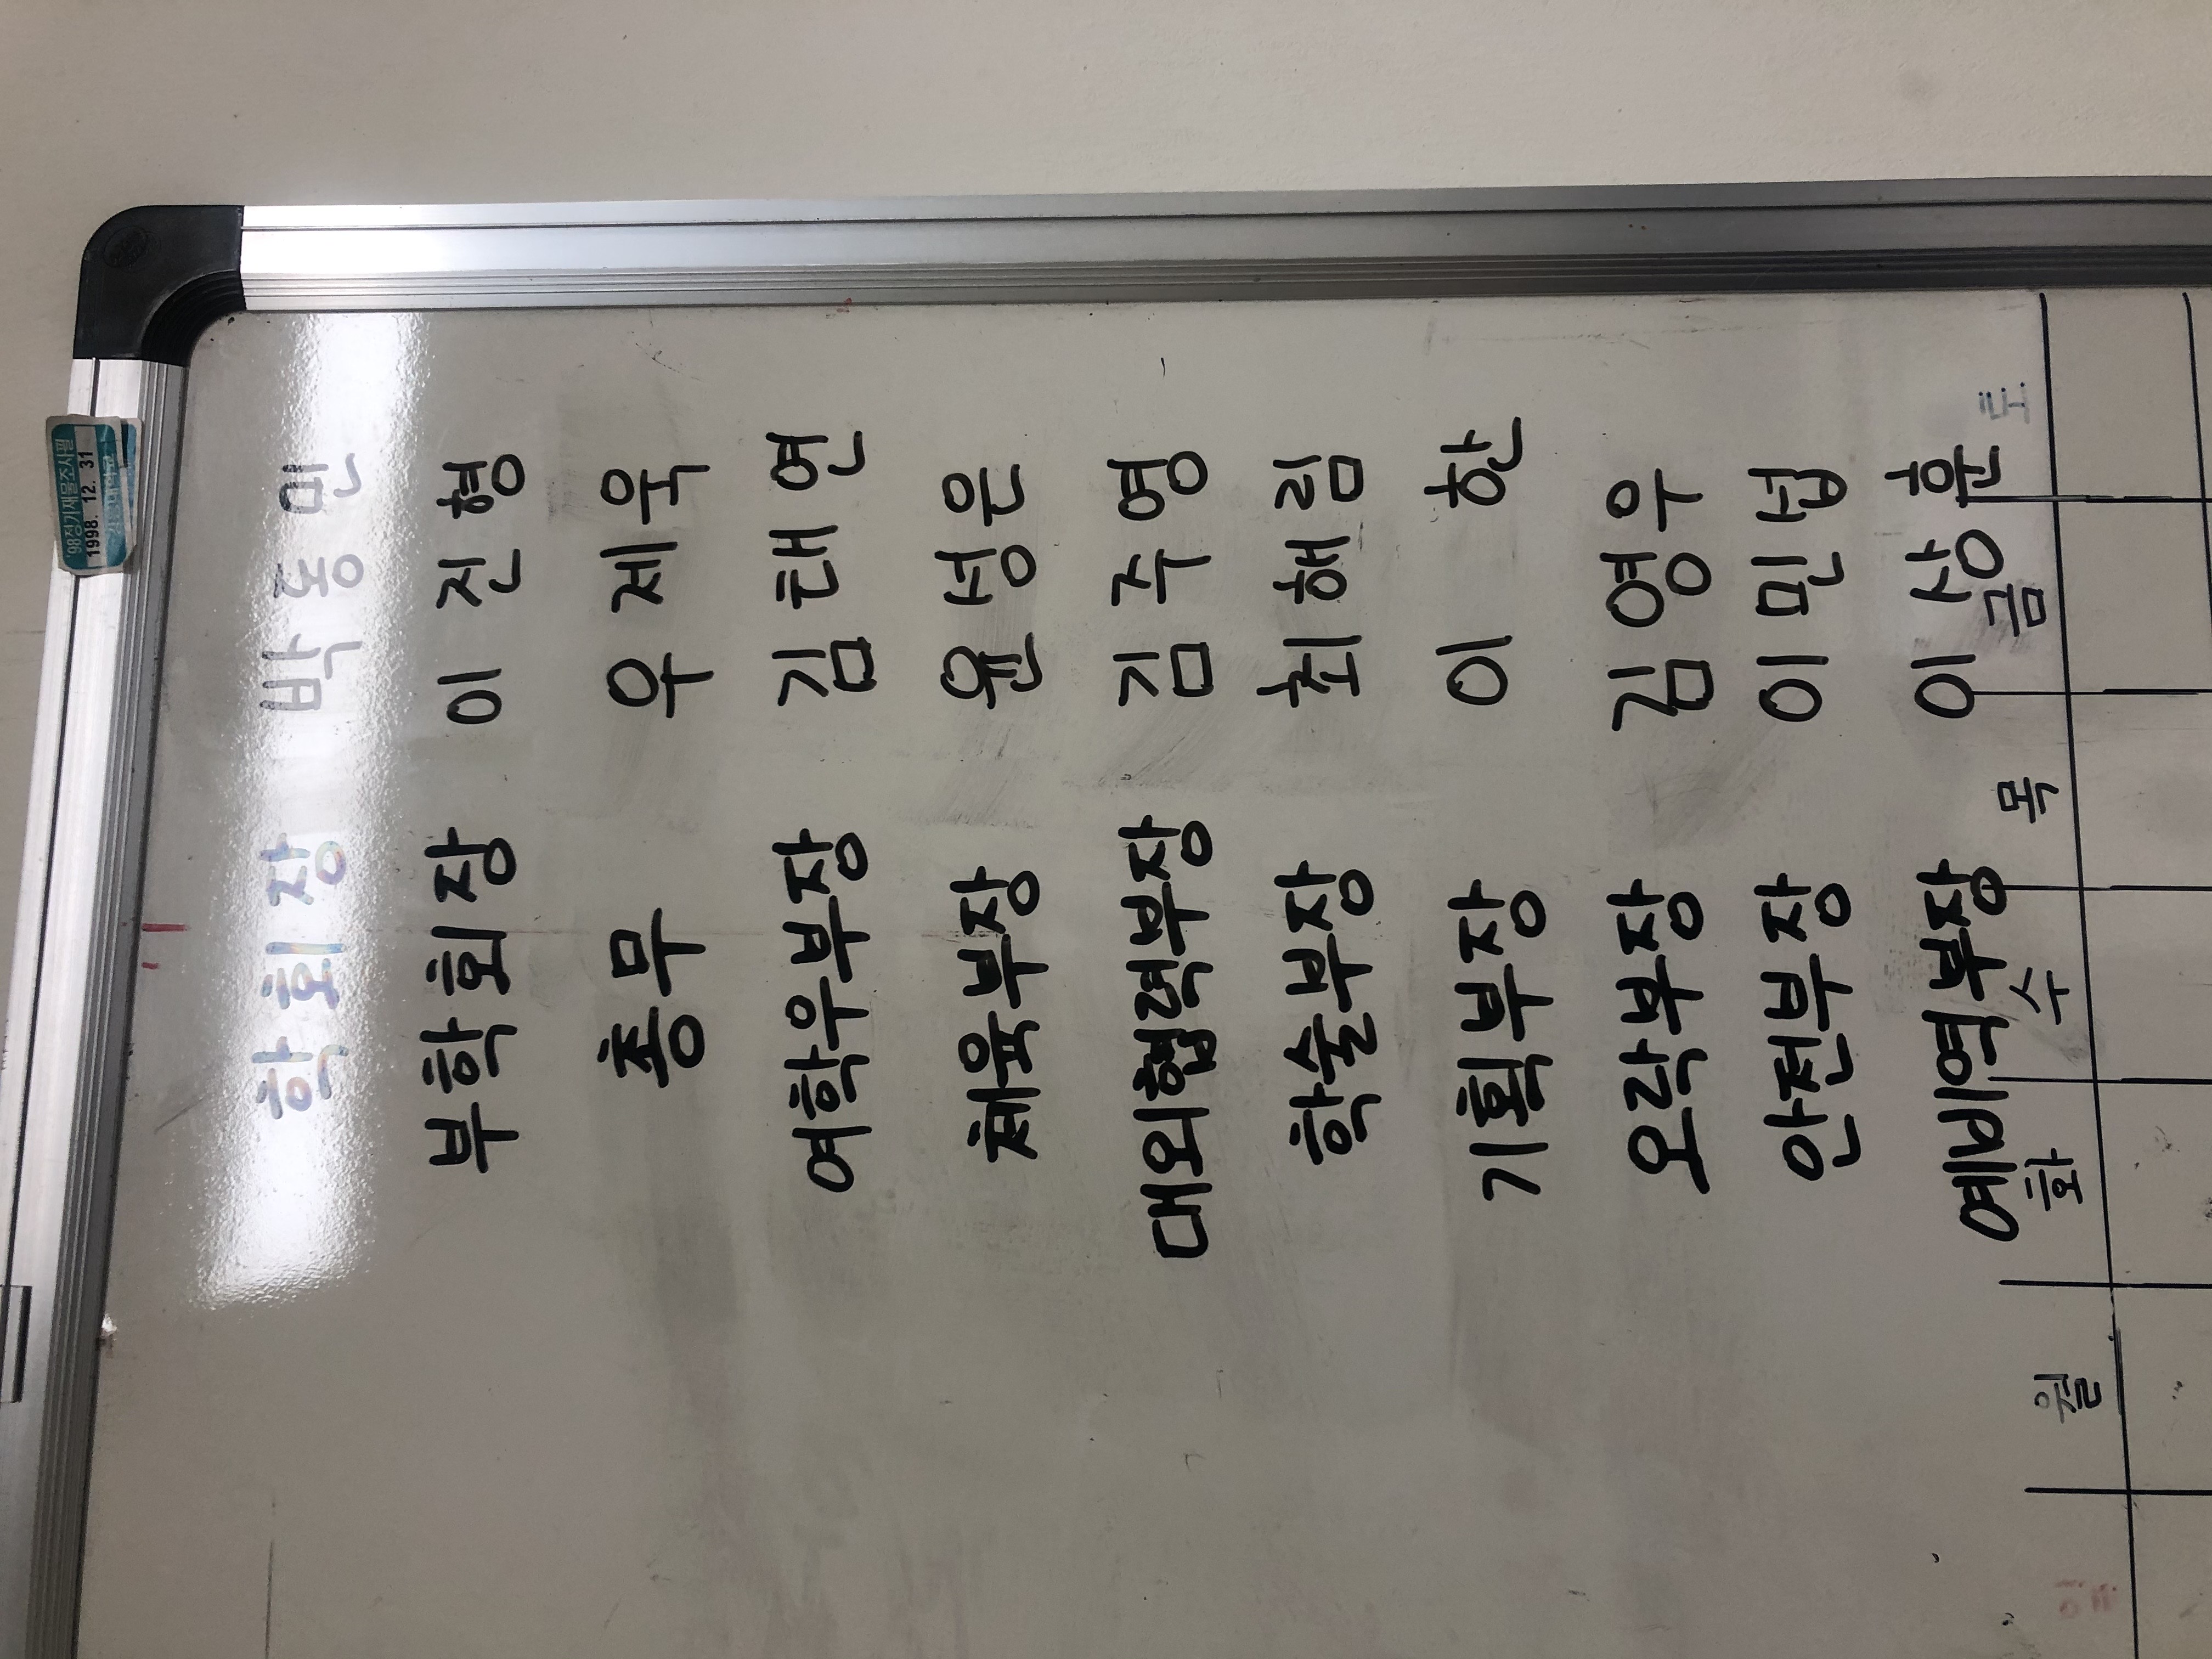 학회장 박동민
부학회장 이진형
총무 우제욱
여학우부장 김태연
체육부장 윤성운
대외협력부장 김주영
학술부장 최해림
기획부장 이한
오락부장 김영우
안전부장 이민섭
예비역부장 이상훈
월 화 수 목 금 토
'98정기재물조사필
1998. 12. 31